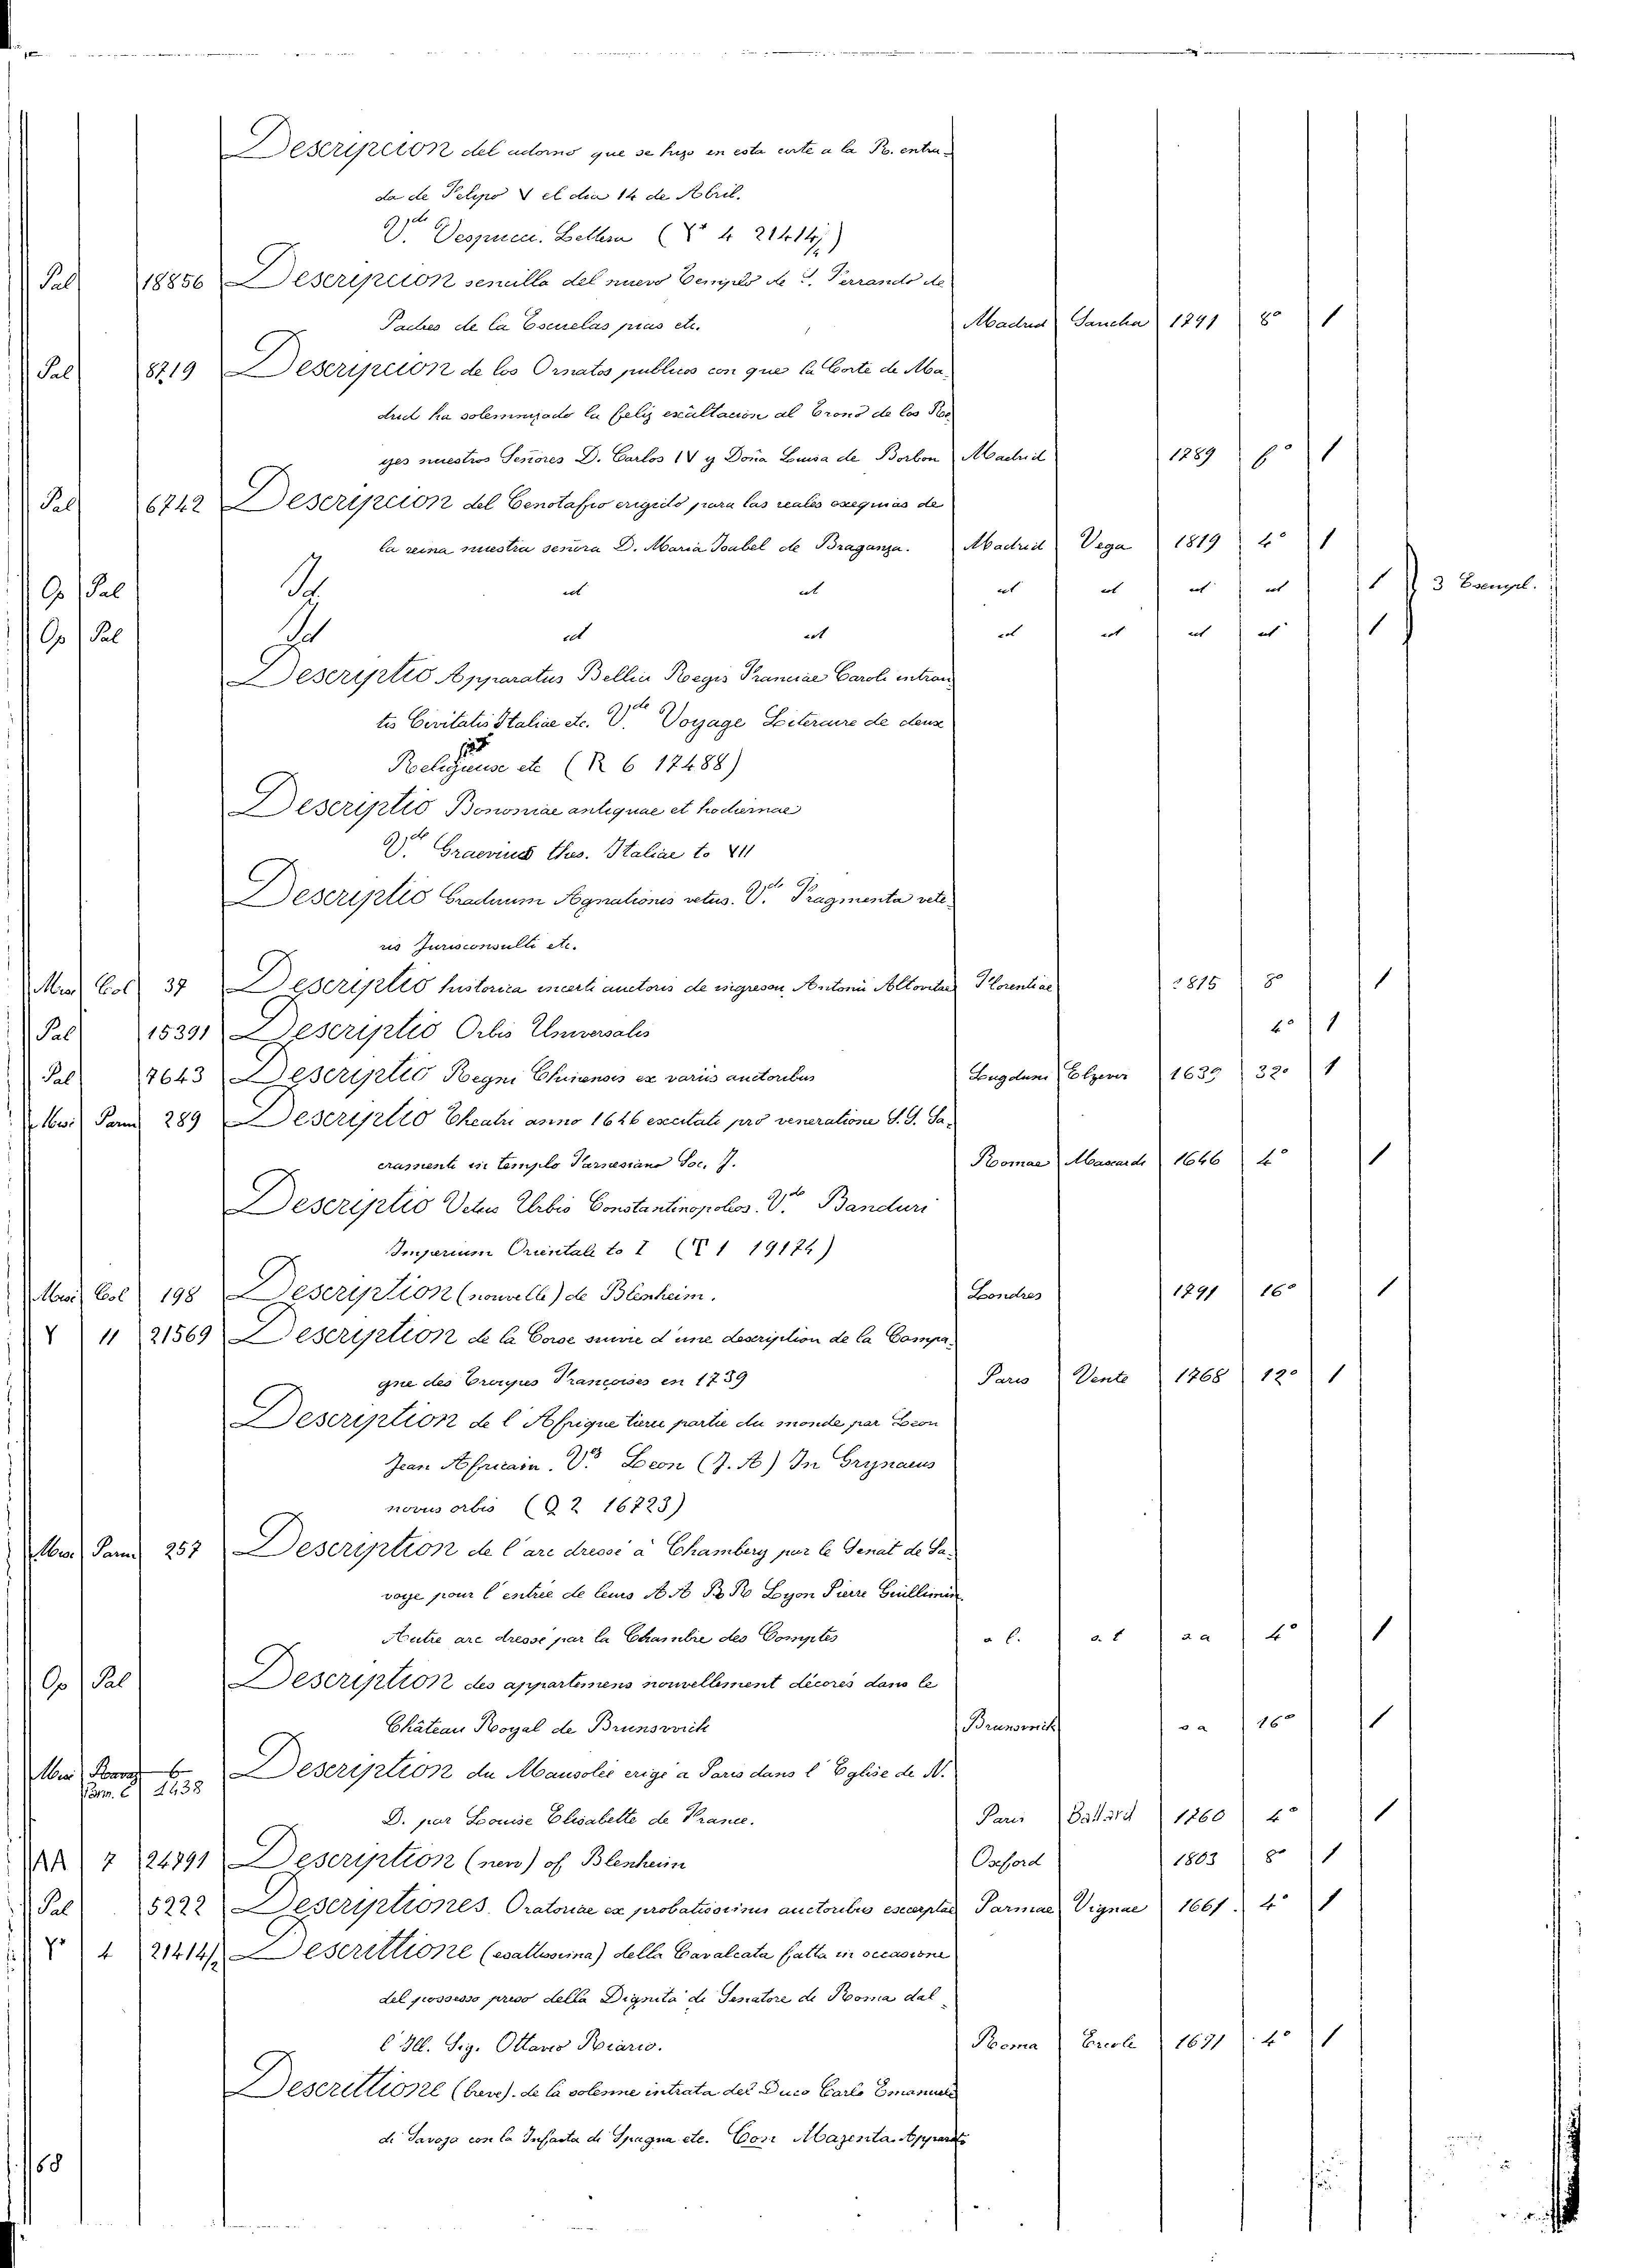 Descripcion del adorno que se hizo en esta corte a la R. entra-
da de Felipo V el dia 14 de Abril.
V.de Vespucci. Lettera (Y° 4 21414/2)
Pal 18856 Descripcion sencilla del nuevo Templo de S. Ferrando de
Padres de la Escuelas pias etc. Madrid Sancha 1791 8° 1
Pal 8719 Descripcion de los Ornatos publicos con que la Corte de Ma-
drid ha solemnizado la feliz exaltacion al Trono de los Re-
yes nuestros Señores D. Carlos IV y Doña Luisa de Borbon Madrid 1789 f° 1
Pal 6742 Descripcion del Cenotafio erigido para las reales exequias de
la reina nuestra señora D. Maria Isabel de Braganza. Madrid Vega 1819 4° 1
Op Pal Id. ut ut ut ut ut ut 1 3 Esempl.
Op Pal Id ut ut ut ut ut ut 1
Descriptio Apparatus Bellici Regis Franciae Caroli intran-
tis Civitatis Italiae etc. V.de Voyage Literaire de deux
Religieuse etc (R 6 17488)
Descriptio Bononiae antiquae et hodiernae
V.de Graevius thes. Italiae to VII
Descriptio Graduum Agnationis vetus. V.de Fragmenta vete-
ris Jurisconsulti etc.
Misc Col 37 Descriptio historica incerti auctoris de ingressu Antonii Altovitae Florentiae 1815 8° 1
Pal 15391 Descriptio Orbis Universalis 4° 1
Pal 7643 Descriptio Regni Chinensis ex variis auctoribus Lugduni Elzever 1639 32° 1
Misc Parm 289 Descriptio Theatri anno 1646 excitati pro veneratione S.S. Sa-
cramenti in templo Farnesiano Soc. J. Romae Mascardi 1646 4° 1
Descriptio Vetus Urbis Constantinopolos. V.de Banduri
Imperium Orientale to I (T 1 19174)
Misc Col 198 Description (nouvelle) de Blenheim. Londres 1791 16° 1
Y 11 21569 Description de la Corse suivie d'une description de la Campa-
gne des Troupes Françoises en 1739 Paris Vente 1768 12° 1
Description de l'Afrique tierce partie du monde par Leon
Jean Africain. V.de Leon (J. A) In Grynaeus
novus orbis (Q 2 16723)
Misc Parm 257 Description de l'arc dressé à Chambery par le Senat de Sa-
voye pour l'entrée de leurs A A R R Lyon Pierre Guillimin
Autre arc dressé par la Chambre des Comptes a l. s. t s a 4° 1
Op Pal Description des appartemens nouvellement décorés dans le
Château Royal de Brunsvvich Brunsvvick s a 16° 1
Misc 6 Description du Mausolée erigé a Paris dans l'Eglise de N.
Parm. C 1438
D. par Louise Elisabette de France. Paris Ballard 1760 4° 1
AA 7 24791 Description (new) of Blenheim Oxford 1803 8° 1
Pal 5222 Descriptiones Oratoriae ex probatissimis auctoribus excerptae Parmae Vignae 1661. 4° 1
Y° 4 21414/2 Descrittione (esattissima) della Cavalcata fatta in occasione
del possesso preso della Dignità di Senatore di Roma dal-
l'Ill. Sig. Ottavio Riario. Roma Ercole 1671 4° 1
Descrittione (breve). de la solenne intrata del Duca Carlo Emanuele
di Savoja con la Infanta di Spagna etc. Con Mazenta Apparato
68